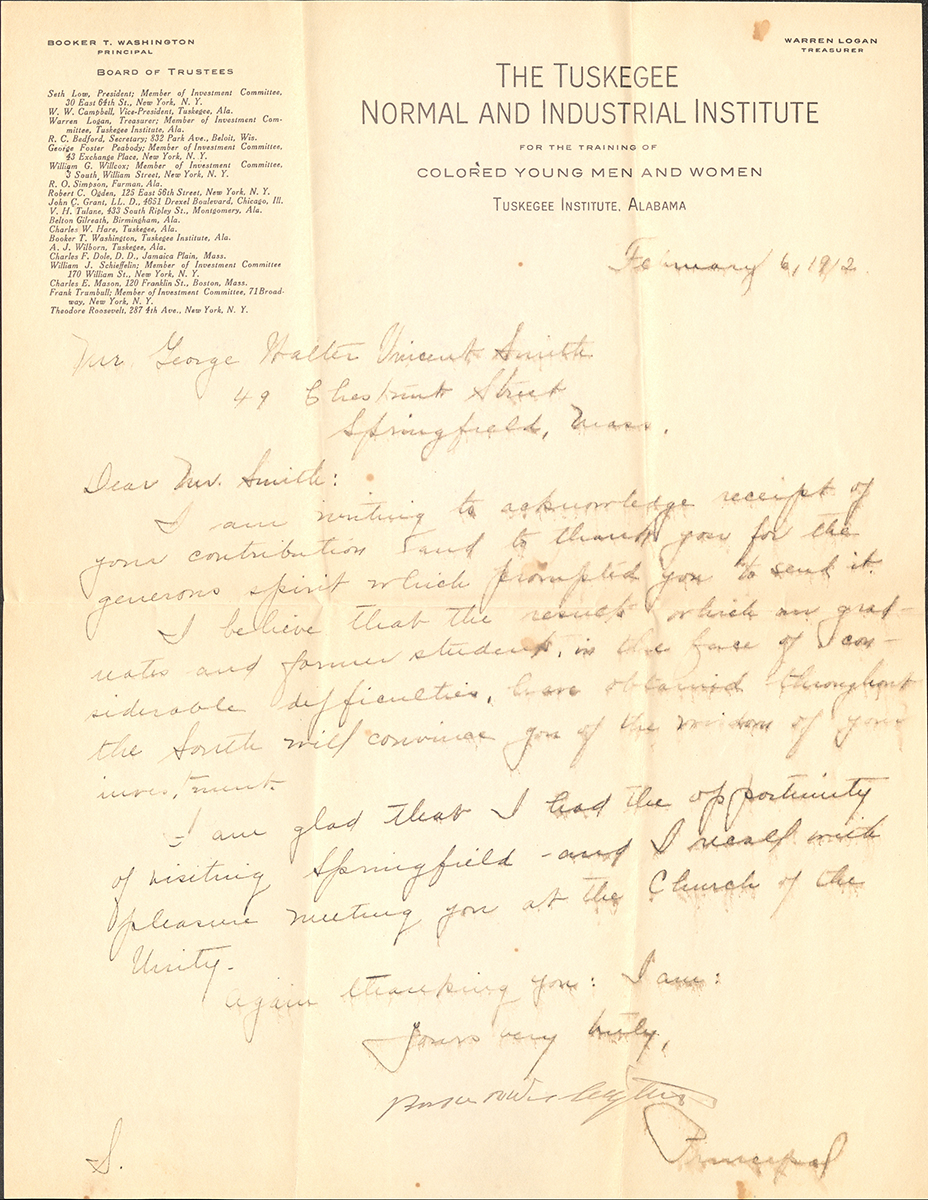 BOOKER T. WASHINGTON
PRINCIPAL
BOARD OF TRUSTEES
Seth Low, President; Member of Investment Committee,
30 East 64th St., New York, N. Y.
W. W. Campbell, Vice-President, Tuskegee, Ala.
Warren Logan, Treasurer; Member of Investment Com-
mittee, Tuskegee Institute, Ala.
R. C. Bedford, Secretary; 832 Park Ave., Beloit, Wis.
George Foster Peabody; Member of Investment Committee,
43 Exchange Place, New York, N. Y.
William G. Willcox; Member of Investment Committee,
3 South William Street, New York, N. Y.
R. O. Simpson, Furman, Ala.
Robert C. Ogden, 125 East 56th Street, New York, N. Y.
John C. Grant, LL. D., 4651 Drexel Boulevard, Chicago, Ill.
V. H. Tulane, 433 South Ripley St., Montgomery, Ala.
Belton Gilreath, Birmingham, Ala.
Charles W. Hare, Tuskegee, Ala.
Booker T. Washington, Tuskegee Institute, Ala.
A. J. Wilborn, Tuskegee, Ala.
Charles F. Dole, D. D., Jamaica Plain, Mass.
William J. Schieffelin; Member of Investment Committee
170 William St., New York, N. Y.
Charles E. Mason, 120 Franklin St., Boston, Mass.
Frank Trumbull; Member of Investment Committee, 71 Broad-
way, New York, N. Y.
Theodore Roosevelt, 287 4th Ave., New York, N. Y.
WARREN LOGAN
TREASURER
THE TUSKEGEE
NORMAL AND INDUSTRIAL INSTITUTE
FOR THE TRAINING OF
COLORED YOUNG MEN AND WOMEN
TUSKEGEE INSTITUTE, ALABAMA
February 6, 1912.
Mr. George Walter Vincent Smith
49 Chestnut Street
Springfield, Mass.
Dear Mr. Smith:
I am writing to acknowledge receipt of
your contribution and to thank you for the
generous spirit which prompted you to send it.
I believe that the results which our grad-
uates and former students, in the face of con-
siderable difficulties, have obtained throughout
the South will convince you of the wisdom of your
investment.
I am glad that I had the opportunity
of visiting Springfield - and I recall with
pleasure meeting you at the Church of the
Unity-
Again thanking you: I am:
Yours very truly,
Booker T. Washington
Principal
S.